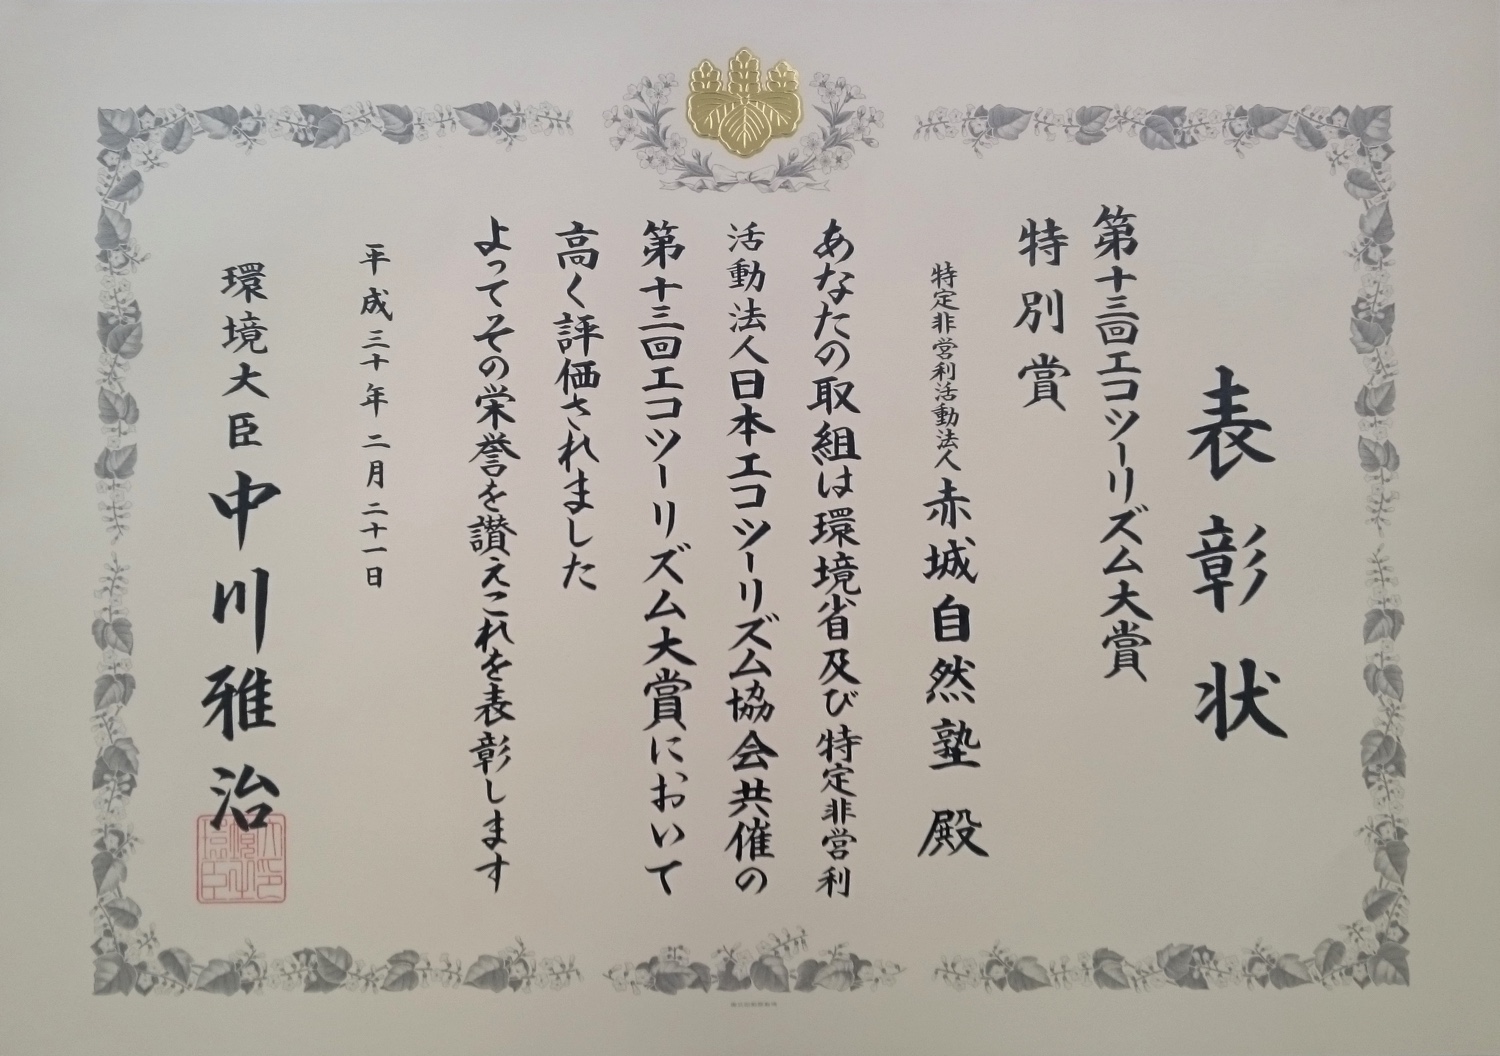 表彰状
第十三回エコツーリズム大賞
特別賞
特定非営利活動法人赤城自然塾 殿
あなたの取組は環境省及び特定非営利
活動法人日本エコツーリズム協会共催の
第十三回エコツーリズム大賞において
高く評価されました
よってその栄誉を讃えこれを表彰します
平成三十年二月二十一日
環境大臣 中川雅治